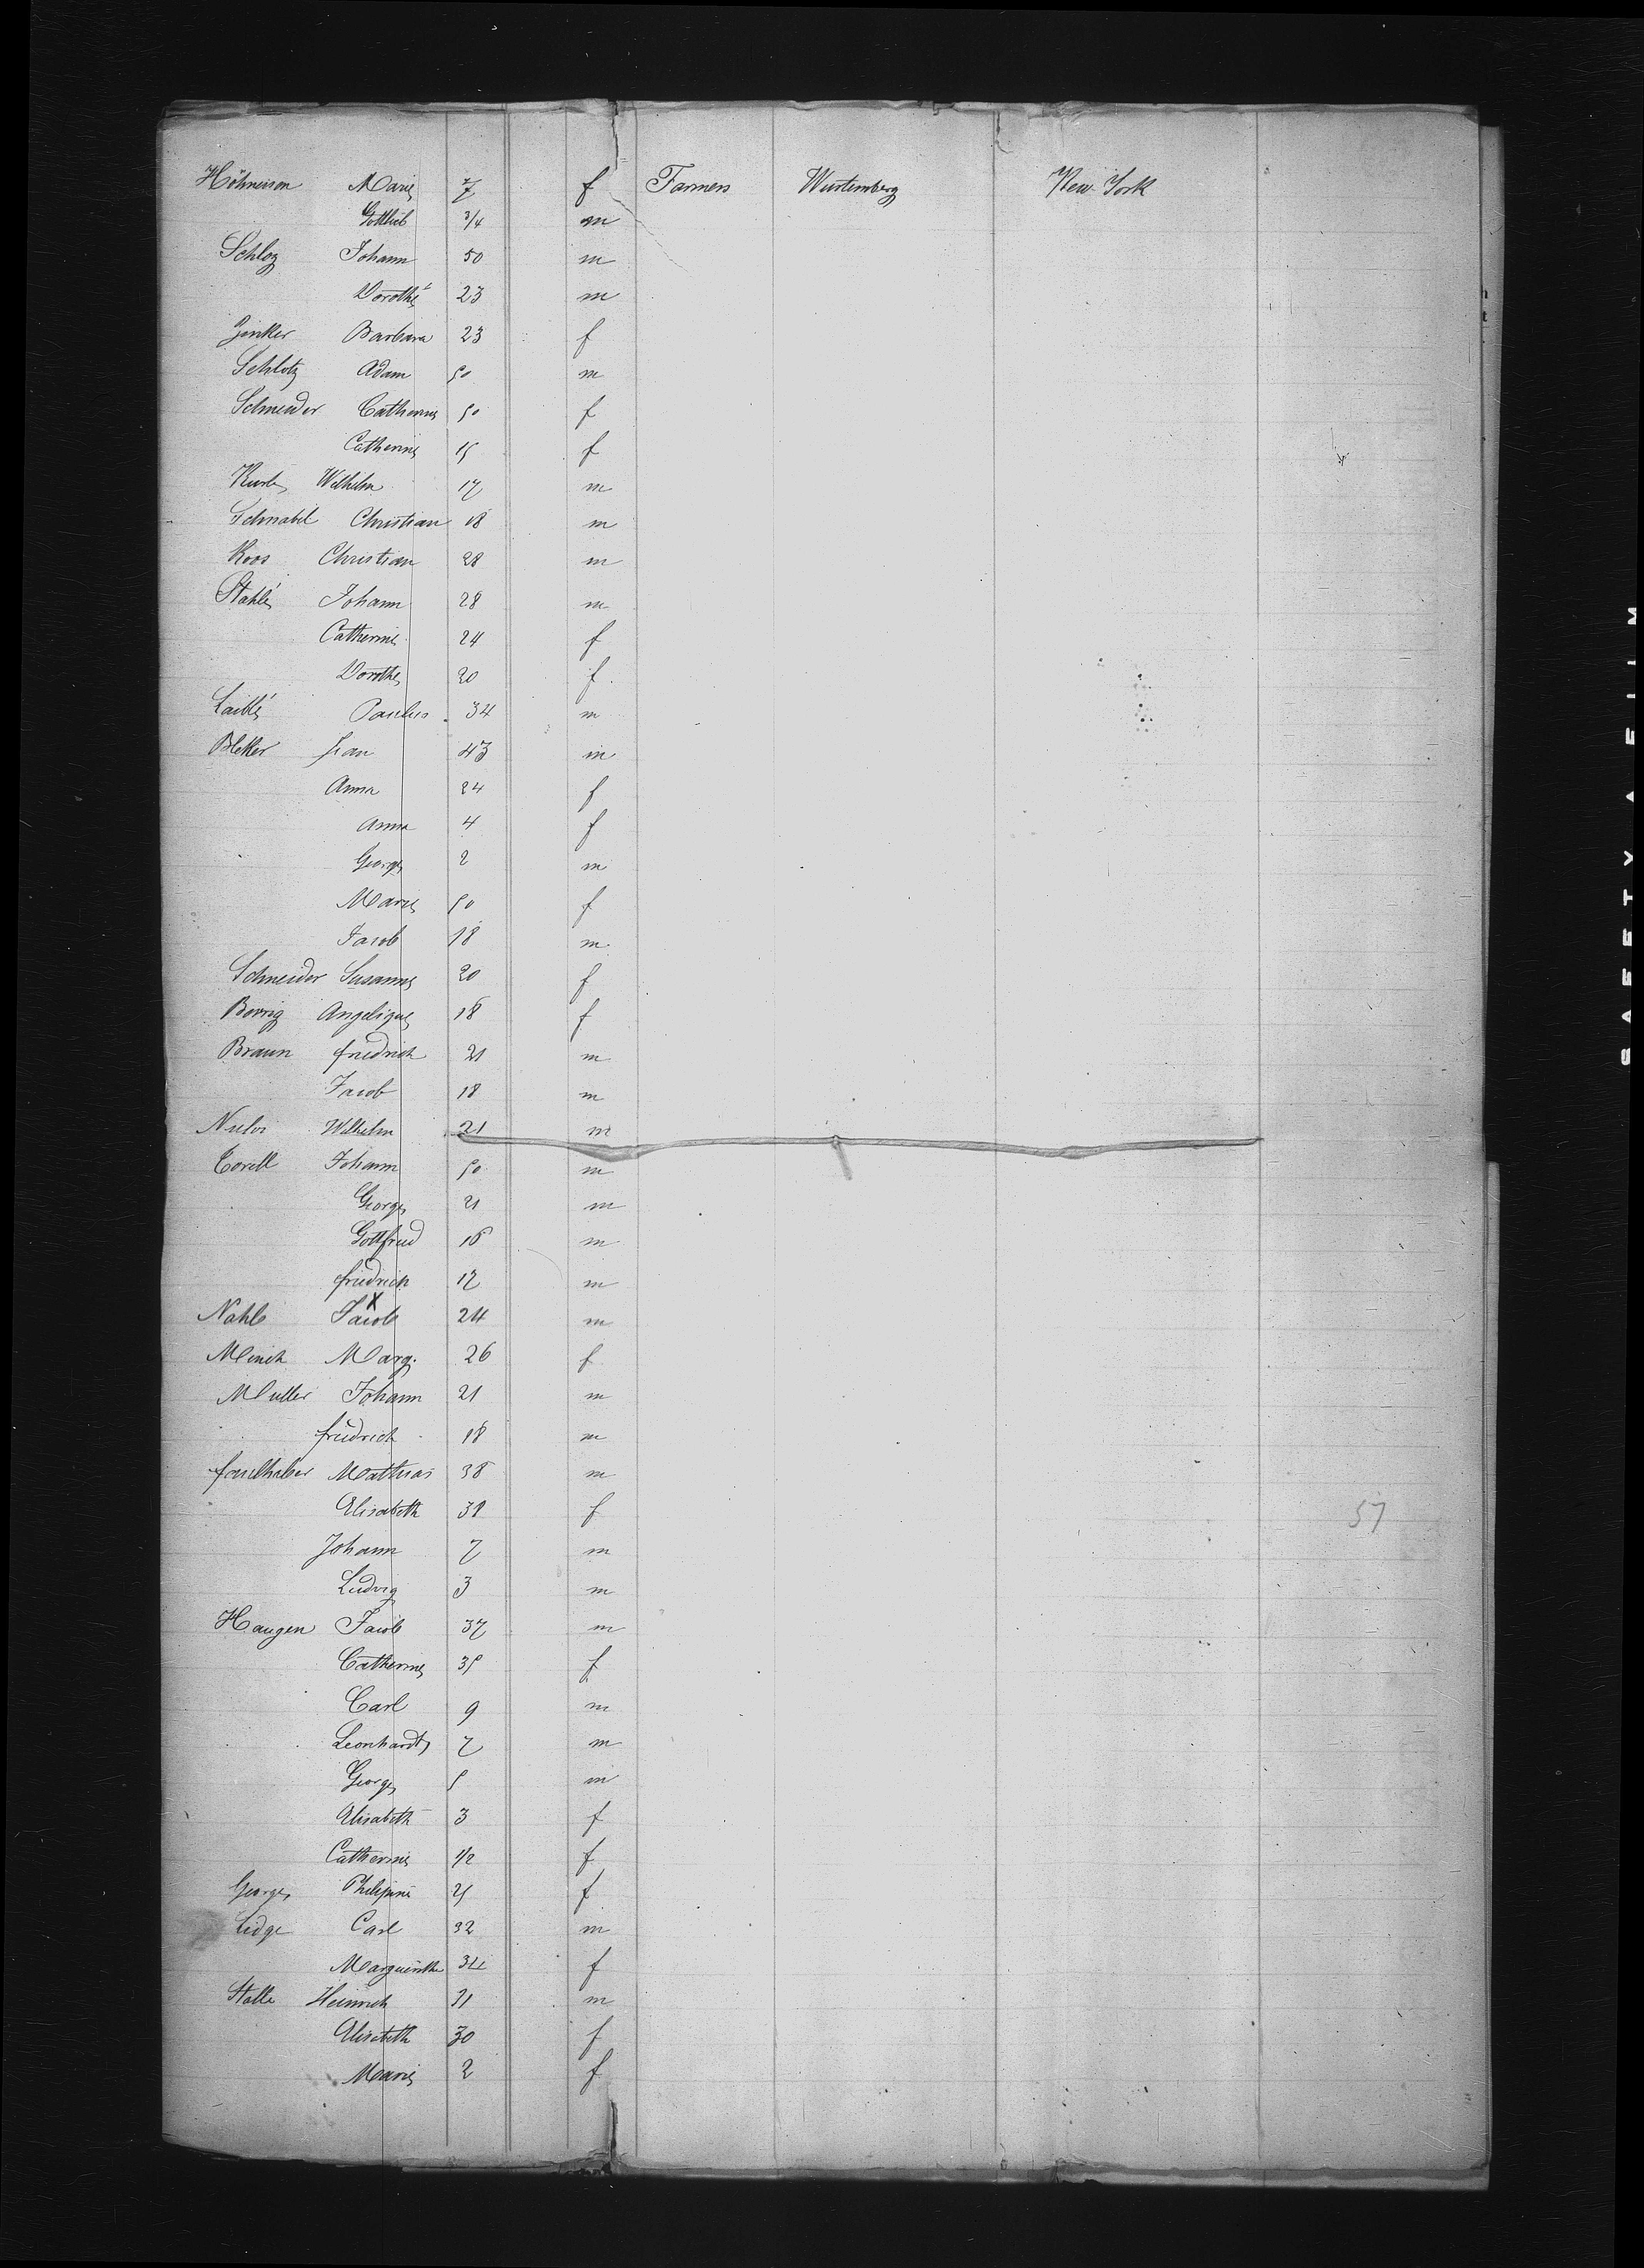 Höhneison Marie 7 f Farmers Wurtemberg New York
Gottlieb 3/4 m
Schloz Johann 50 m
Dorothé 23 m
Ginkler Barbara 23 f
Schlotz Adam 50 m
Schneider Catherine 50 f
Catherine 15 f
Wilhelm 17 m
Schnabel Christian 18 m
Koos Christian 28 m
Stahlé Johann 28 m
Catherine 24 f
Dorothe 20 f
Laiblé Paulus 34 m
Bleker Jean 43 m
Anna 24 f
Anna 4 f
George 2 m
Marie 50 f
Jacob 18 m
Schneider Susanne 20 f
Borrig Angelique 18 f
Braun friedrich 21 m
Jacob 18 m
Wilhelm 21 m
Corell Johann 50 m
George 21 m
Gottfried 16 m
friedrich 17 m
X
Nahle Jacob 24 m
Minch Marg. 26 f
Muller Johann 21 m
friedrich 18 m
faulhaber Mathias 38 m
Elisabeth 31 f
57
Johann 7 m
Ludvig 3 m
Haugen Jacob 37 m
Catherine 35 f
Carl 9 m
Leonhardt 7 m
George 5 m
Elisabeth 3 f
Catherine 1/2 f
George Philipine 25 f
Lidge Carl 32 m
Marguerithe 34 f
Stalle Heinrich 31 m
Elisabeth 30 f
Marie 2 f
SAFETY FILM